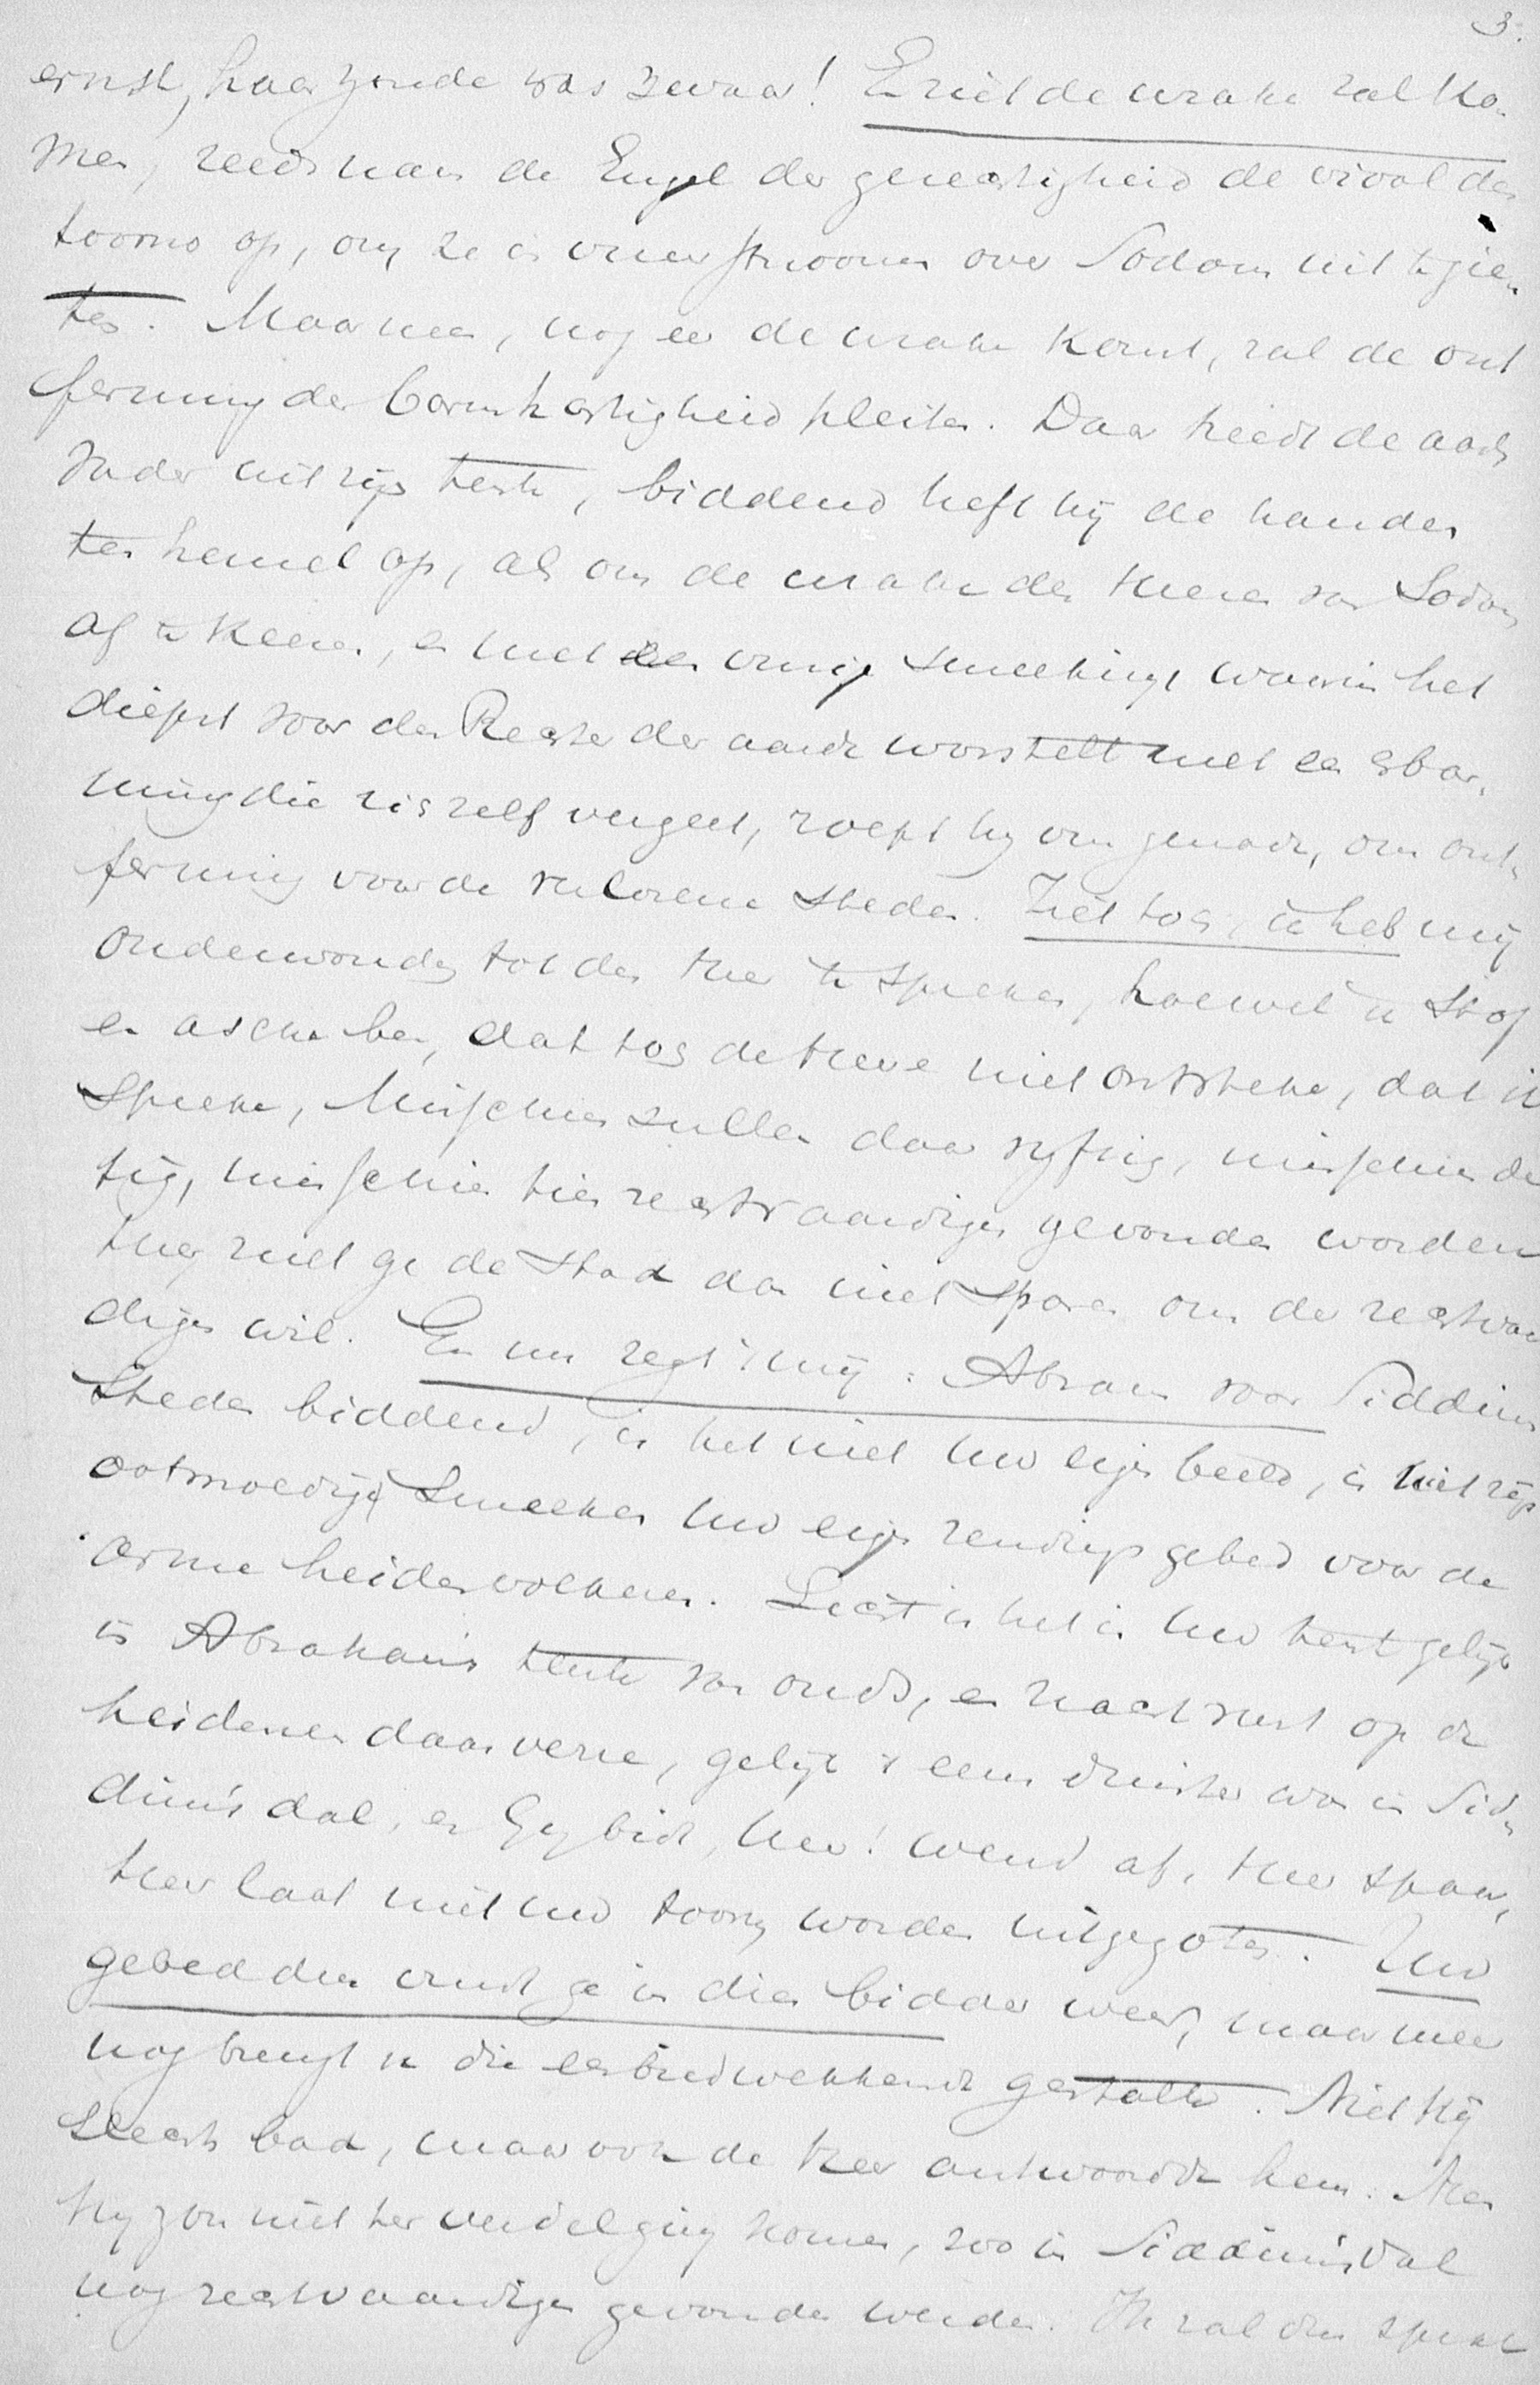 3.
ernst, haar zonde was zwaar! En ziet de wrake zal ko-
men, reeds nam de Engel der gerechtigheid de viool des
toorns op, om ze in vuurstroomen over Sodom uit te gie-
ten. Maar neen, nog eer de wrake komt, zal de ont
ferming der barmhartigheid pleiten. Daar treedt de aarts
vader uit zijn tente, biddend heft hij de handen
ten hemel op, als om de wrake des Heeren van Sodom
af te keeren, en met een vurige smeekinge waarin het
diepst voor den Rechter der aarde worstelt met een erbar-
ming die zich zelf vergeet, roept hij om genade, om ont-
ferming voor de verlorene steden. Ziet toch, ik heb mij
onderwonden tot den Heer te spreken, hoewel ik stof
en assche ben, dat toch de Heere niet ontsteke, dat ik
spreke, Misschien zullen daar vyftig, misschien der
tig, misschien tien rechtvaardigen gevonden worden
Heer zult ge de stad dan niet sparen om der rechtvaar
digen wil. En nu zegt mij: Abram voor Siddims
steden biddend, is het niet uw eigen beeld, is niet zijn
ootmoedig smeeken uw eigen zendingsgebed voor de
arme heidenvolkeren. Licht is het in uw tent gelijk
in Abrahams tente van ouds, en nacht rust op de
heidenen daar verre, gelijk 't eens duister was in Sid-
dim's dal, en Gy bidt, Heer! wend af, Heer spaar,
Heer laat niet uw toorn worden uitgegoten. Uw
gebedden vindt ge in dien bidder weer, maar meer
nog brengt u die eerbiedwekkende gestalte. Niet hij
slechts bad, maar ook de Heer antwoordde hem. Neen
Hy zou niet ter verdelging komen, zoo in Siddim's dal
nog rechtvaardigen gevonden werden. Ik zal dan sprak